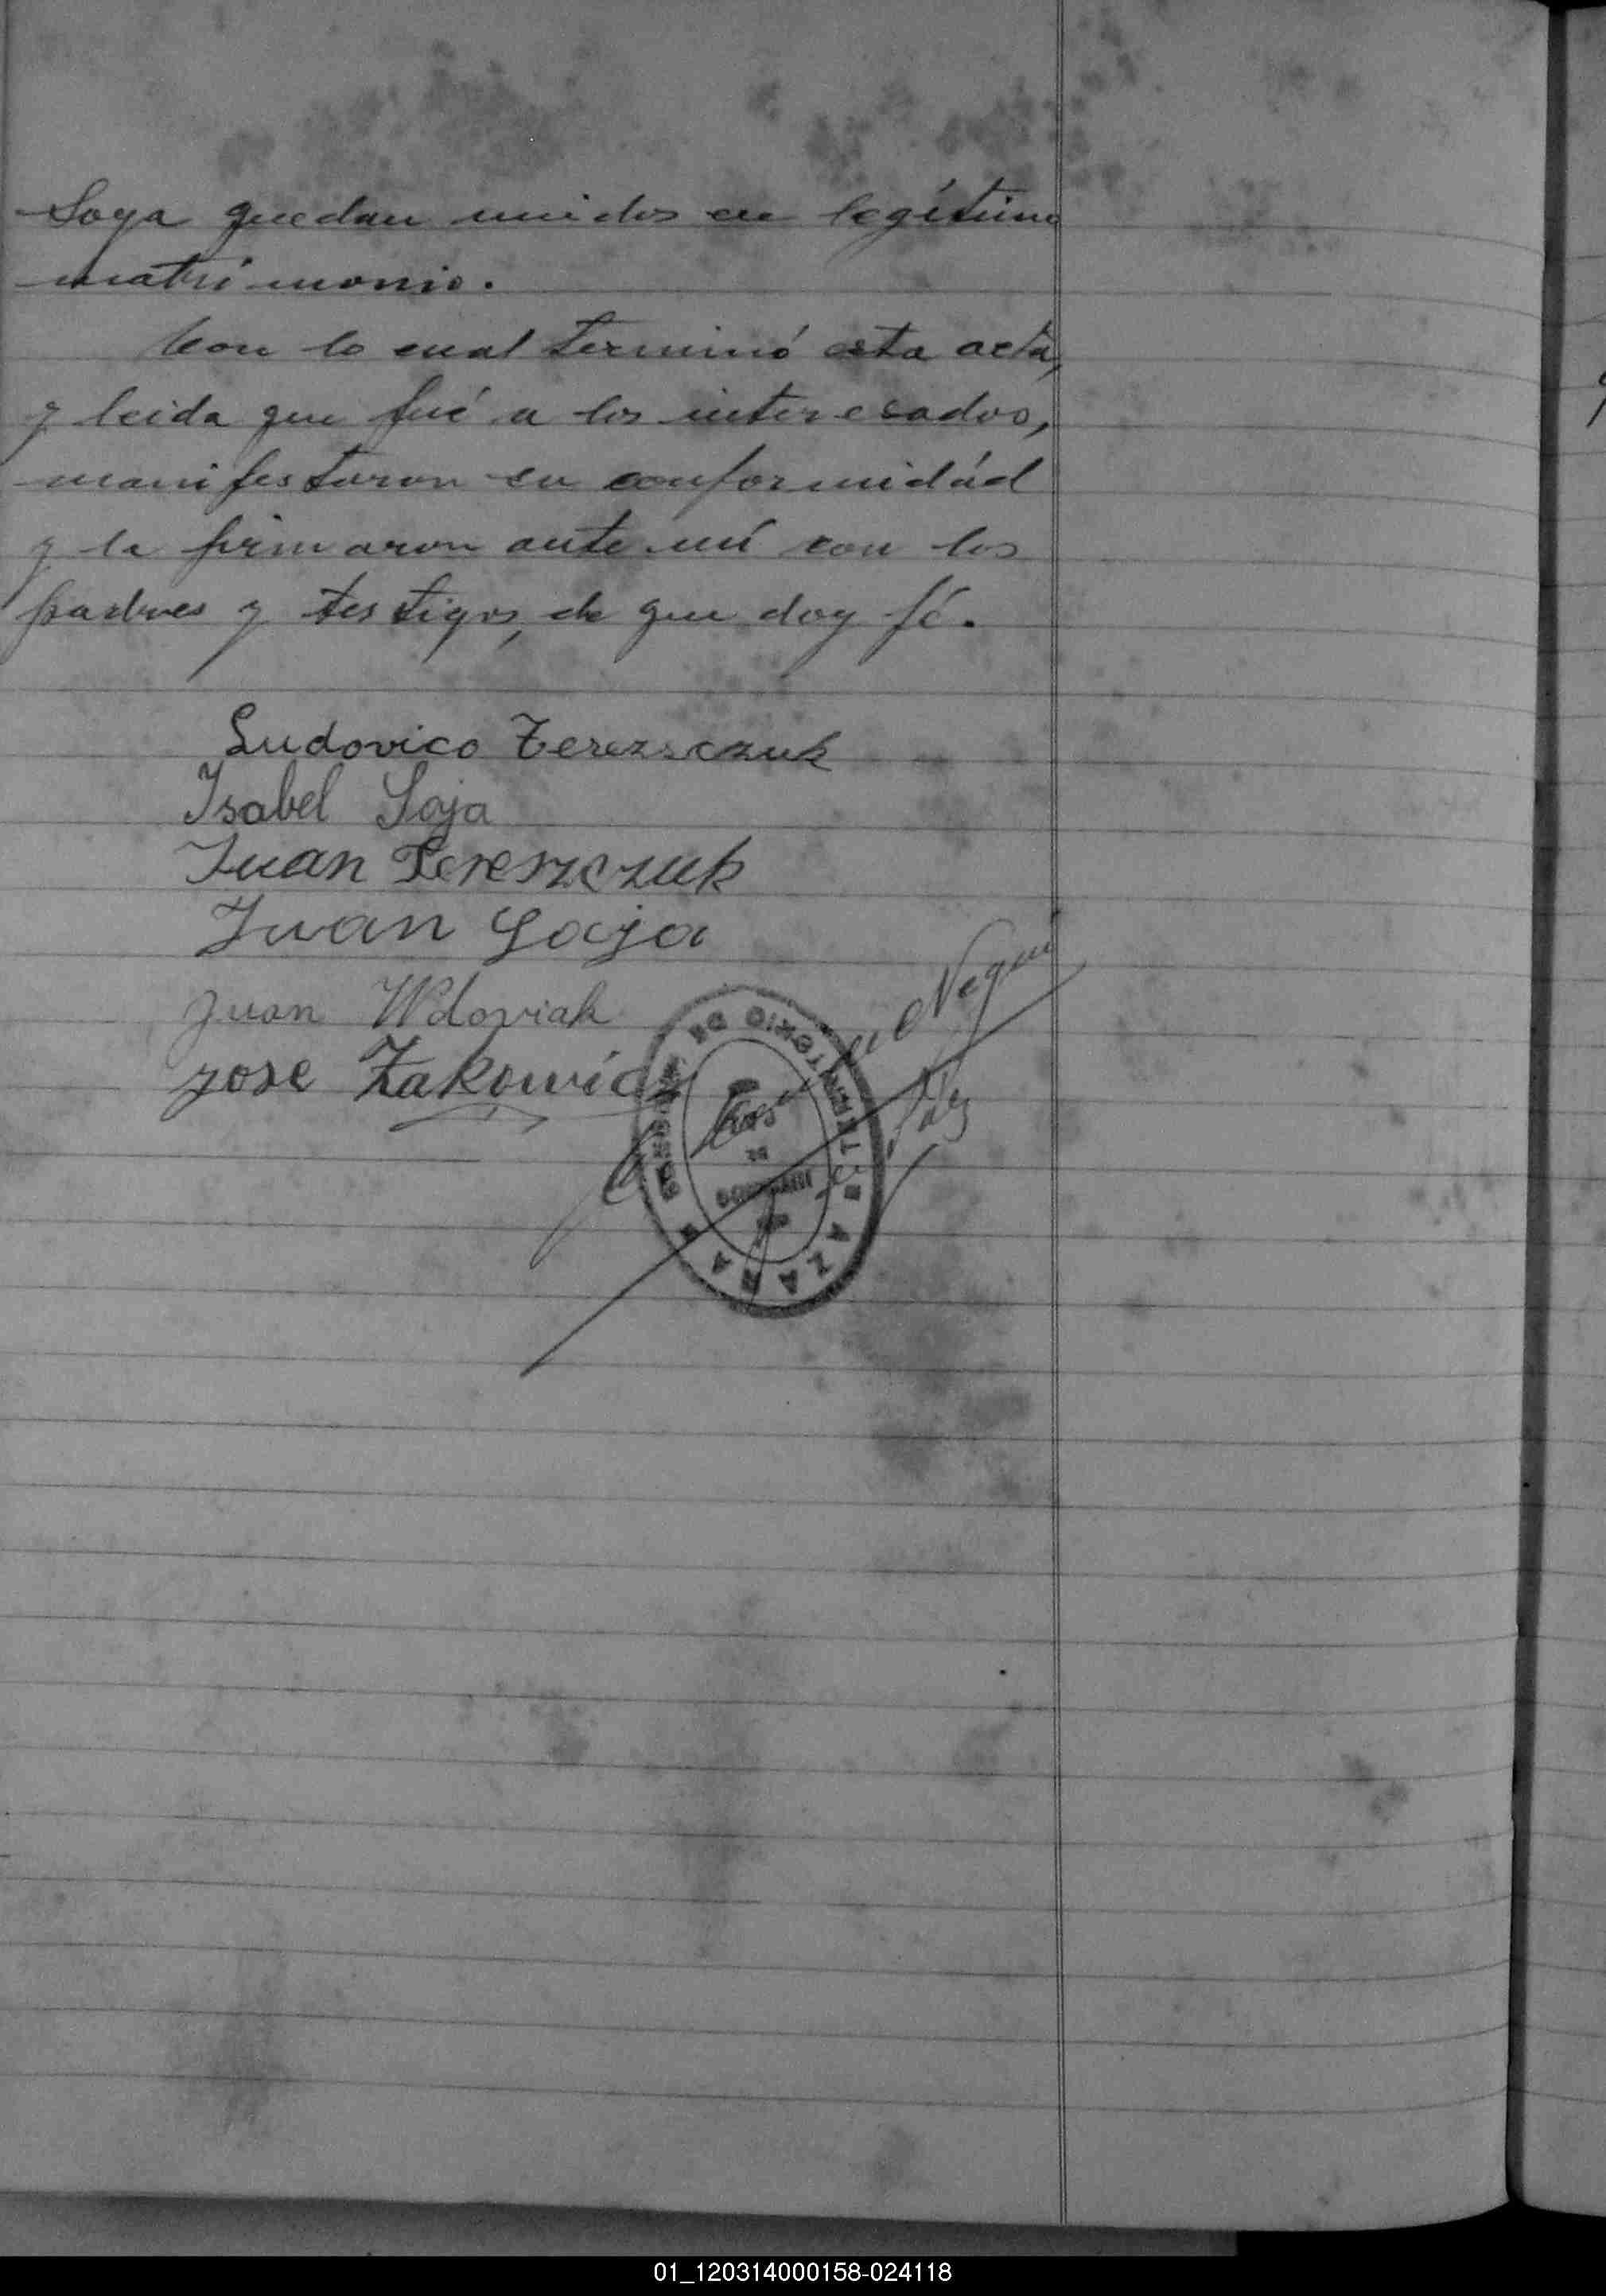 Soya quedan unidos en legítimo
matrimonio.
Con lo cual terminó esta acta,
y leida que fué a los interesados,
manifestaron su conformidád
y la firmaron ante mí con los
padres y testigos, de que doy fé.
Ludovico Terezsczuk
Isabel Soja
Juan Tereszczuk
Juan Soja
Juan Wdoviak
Jose Żakowicz
AZARA
01_120314000158-024118